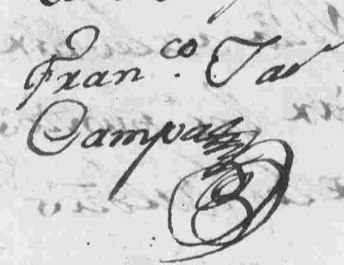 Fran.co Jav
Campa